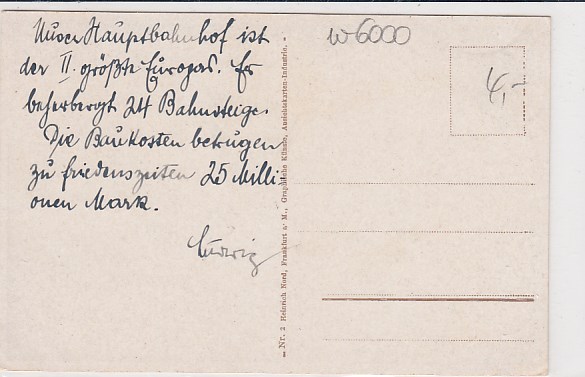 Unser Hauptbahnhof ist
der II. größte Europas. Er
beherbergt 24 Bahnsteige.
Die Baukosten betrugen
zu Friedenszeiten 25 Milli-
onen Mark.
Ludwig
W6000
4,-
Nr. 2 Heinrich Nord, Frankfurt a/M., Graphische Künste, Ansichtskarten-Industrie.